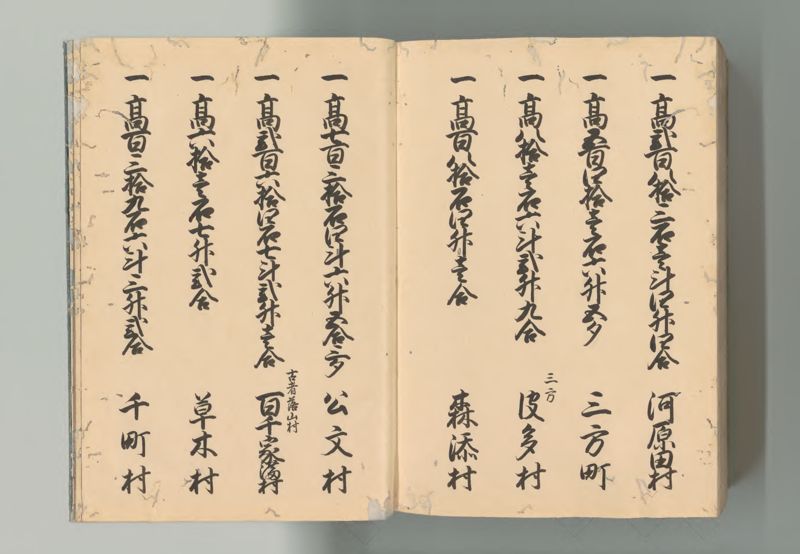 一 高弐百八拾三石壱斗四升四合 河原田村
一 高五百四拾壱石六升五夕 三方町
一 高八拾壱石六斗弐升九合 三方 波多村
一 高百八拾石四升壱合 森添村
一 高七百三拾石四斗六升五合三夕 公文村
一 高弐百六拾四石七斗弐升壱合 百千家満村
古者落山村
一 高六拾壱石七升弐合 草木村
一 高百三拾九石六斗三升弐合 千町村